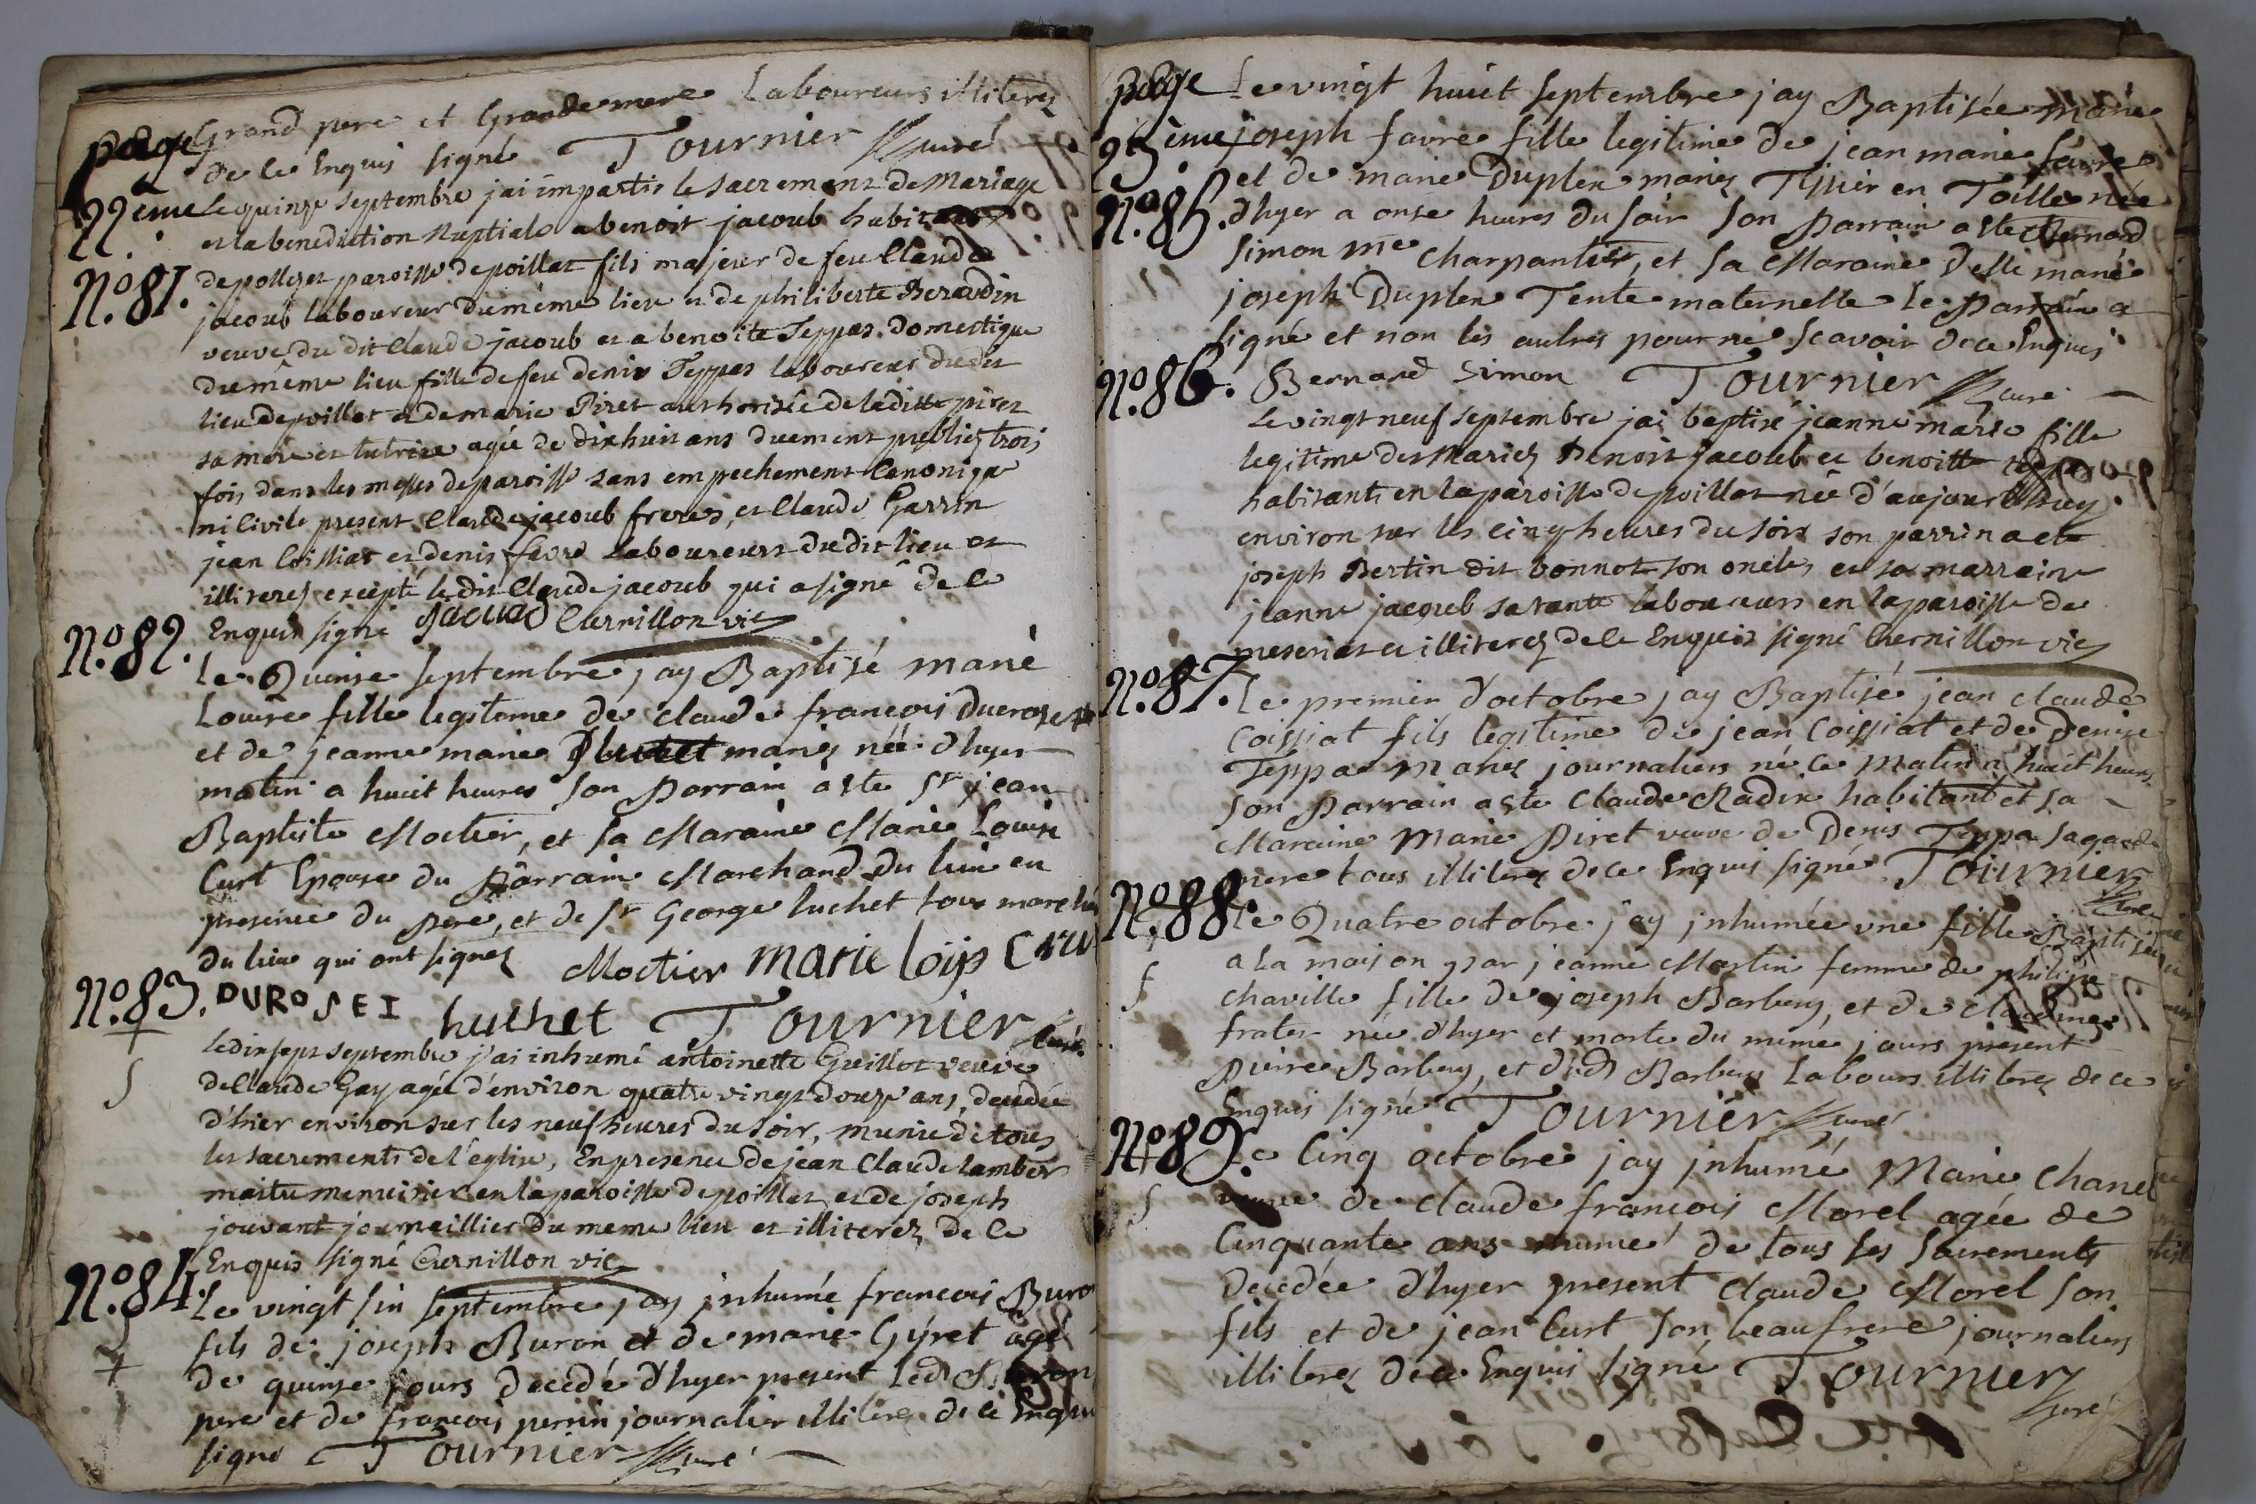 page
22eme
Grand pere et Grandemere Laboureurs illiterez
de ce Enquis signé Tournier curé
Le quinze septembre jai impartis le sacrement de Mariage
et la benediction Nuptiale a benoit jacoub habitant
de pollezet paroisse de poillat fils majeur de feu Claude
N.º 81.
jacoub laboureur du méme lieu et de philiberte Beraudin
veuve du dit Claude jacoub et a benoite Teppas domestique
du même lieu fille de feu denis Teppas laboureur dudit
lieu de poillat et de marie Piret authorisée de laditte piret
sa mere et tutrice agée de dix huit ans duement publiez trois
fois dans les messes de paroisse sans empechement Canonique
ni Civile present Claude jacoub freres, et Claude Garrin
jean Coissiat et denis favre Laboureurs dudit lieu et
illiterez excepté le dit Claude jacoub qui a signé de ce
Enquis signé jacoub Curnillon vic
N.º 82.
Le Quinse septembre jay Baptisé marie
Louise fille legitime de claude francois
et de jeanne marie mariez née d'hyer
matin a huit heures son Parrain a ete Sr jean
Baptiste Moctier, et sa Maraine Marie Louise
Curt Epouse du Parrain Marchand du lieu en
presence du Pere, et de Sr George luchet tous march
du lieu qui ont signez Moctier marie loip Cru
N.º 83.
DUROSEI huchet Tournier curé
Le dix sept septembre j'ai inhumé antoinette Guillot veuve
de Claude Gay agée d'environ quatre vingt douze ans, decedée
d'hier environ sur les neuf heures du soir, munie de tous
les sacrements de l'eglise, En presence de jean Claude lambert
maitre menuisier en la paroisse de poillat et de joseph
jouvant journaillier du meme lieu et illiterez de ce
Enquis signé Curnillon vic
N.º 84.
Le vingt six septembre jay jnhumé francois Buron
fils de joseph Buron et de marie Gyret agé
de quinse jours decedé d'hyer present led Buron
pere et de francois perrin journalier illiterez de ce Enquis
signé Tournier curé
page
23eme
Le vingt huit septembre jay Baptisée marie
joseph favre fille legitime de jean marie favre
et de marie Duplex mariez Tissier en Toille née
N.º 85.
d'hyer a onse heures du soir son Parrain a ete Bernard
simon me Charpantier, et sa Maraine Delle marie
joseph Duplex Tente maternelle le Parrain a
signé et non les autres pour ne scavoir de ce Enquis
N.º 86.
Bernard simon Tournier curé
Le vingt neuf septembre jai baptisé jeanne marie fille
legitime des Mariez Benoit jacoub et benoitte teppas
habitants en la paroisse de poillat née d'aujourdhuy
environ sur les cinq heures du soir son parrin a ete
joseph Bertin dit bonnot son oncle, et sa marraine
jeanne jacoub sa tante laboureurs en la paroisse de
present et illiterez de ce Enquis signé Curnillon vic
N.º 87.
Le premier d'octobre jay Baptisé jean claude
Coissiat fils legitime de jean Coissiat et de Denise
Teppa Mariez journaliers né ce Matin a huit heures
son Parrain a ete Claude Radix habitant et sa
Maraine Marie Piret veuve de Denis Teppa sa grande
mere tous illiterez de ce Enquis signé Tournier
curé
N.º 88.
Le Quatre octobre jay jnhumée une fille Baptisée
a la maison par jeanne Martin femme de philipe
chaville fille de joseph Barbery, et de claudine
frater née d'hyer et morte du méme jours present
Pierre Barbery, et dud Barbery Labours illiterez de ce
Enquis signé Tournier curé
N.º 89.
Le Cinq octobre jay jnhumé Marie Chanel
veuve de claude francois Morel agée de
Cinquante ans munie de tous ses sacrements
decedée d'hyer present claude Morel son
fils et de jean Curt son beaufrere journaliers
illiterez de ce Enquis signé Tournier
curé